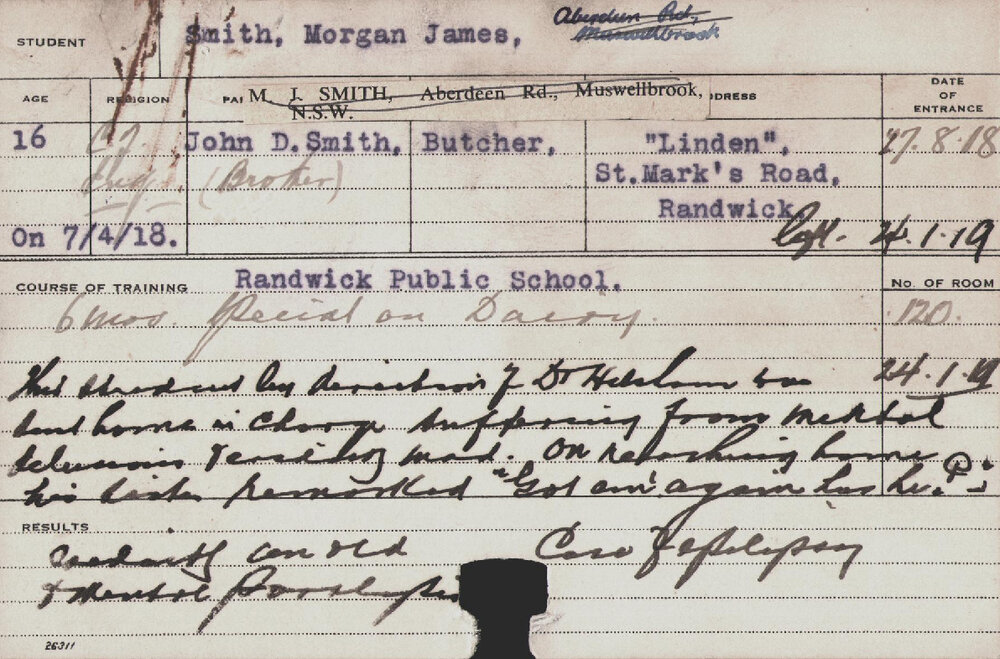 STUDENT Smith, Morgan James, Aberdeen Rd,
Muswellbrook
AGE RELIGION PA M. J. SMITH, Aberdeen Rd., Muswellbrook, DRESS DATE OF ENTRANCE
N.S.W.
16 John D. Smith, Butcher, "Linden", 17.8.18
Eng. (Brother) St.Mark's Road,
Randwick
On 7/4/18. Left. 24.1.19
COURSE OF TRAINING Randwick Public School. No. OF ROOM
6 mos. Special on Dairy. 120.
This student by direction of Dr Helsham was 24.1.19
sent home in charge suffering from mental
delusions mad. On reaching home
his sister remarked "Got 'em" again has he.
RESULTS
an old Case of epilepsy
& Mental
26311